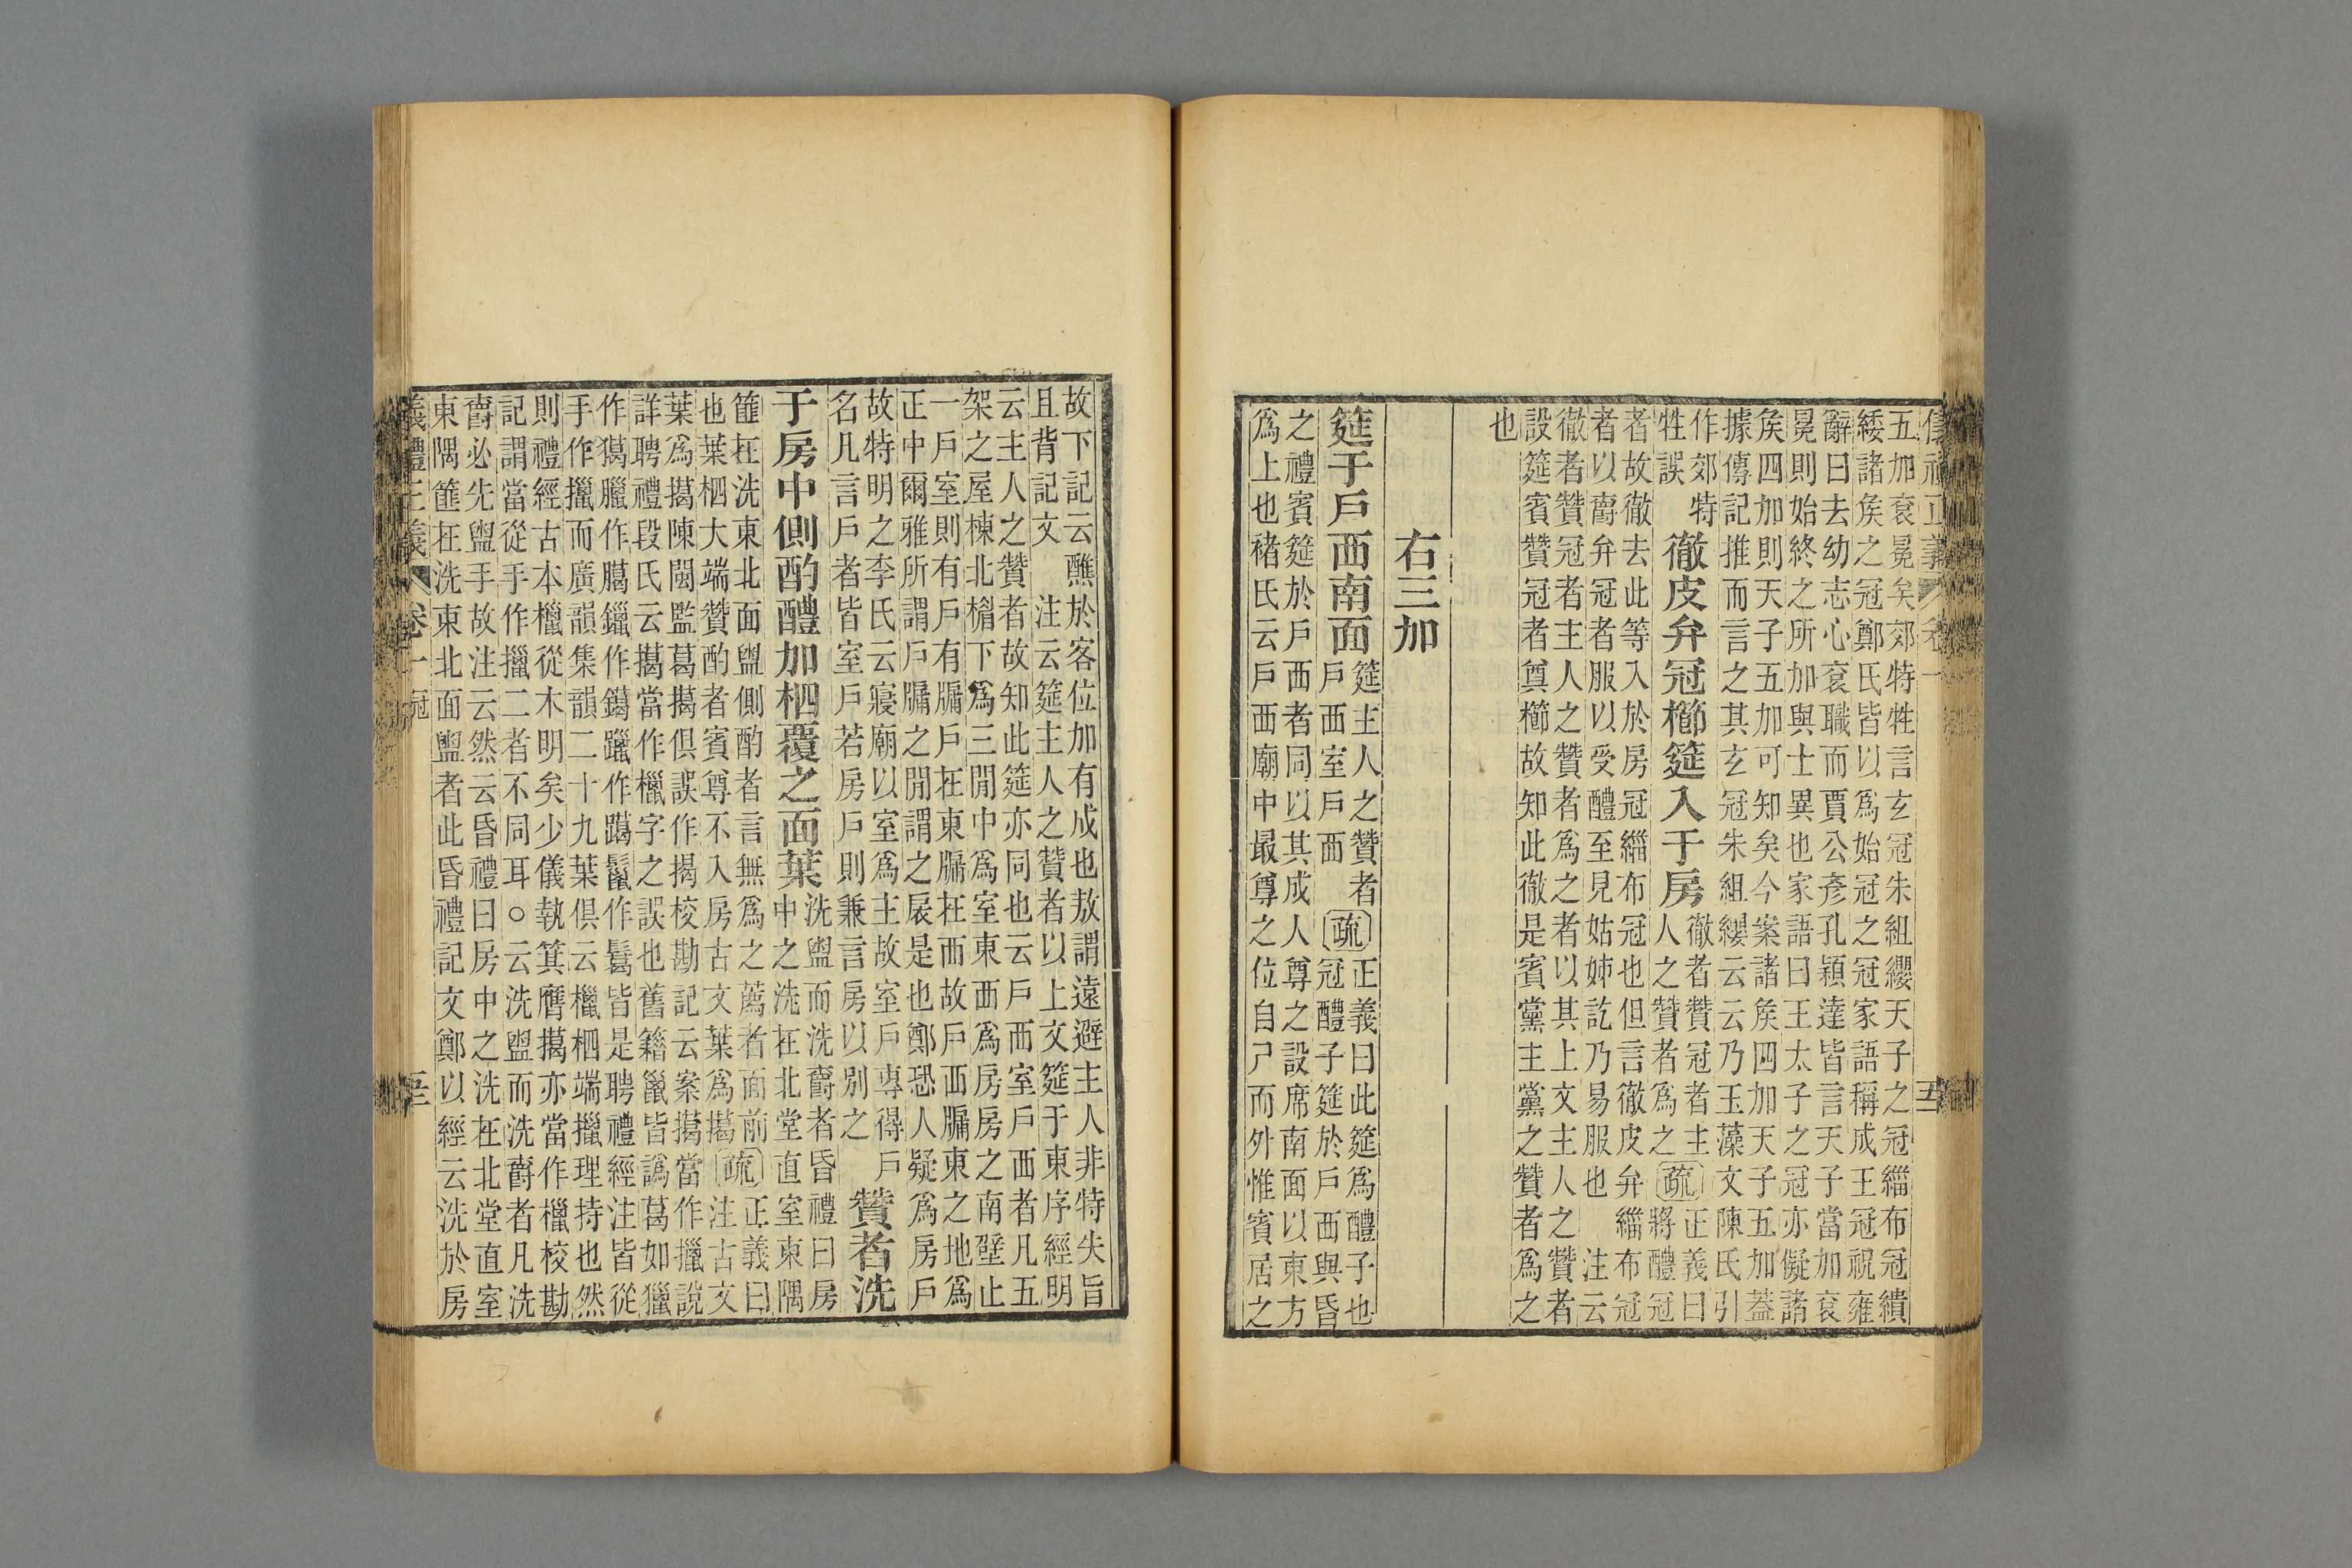 五加袞冕矣郊特牲言玄冠朱組纓天子之冠緇布冠繢
緌諸矦之冠鄭氏皆以爲始冠之冠家語稱成王冠祝雍
辭曰去幼志心袞職而賈公彥孔穎達皆言天子當加袞
冕則始終之所加與士異也家語曰王太子之冠亦儗諸
矦四加則天子五加可知矣今案諸矦四加天子五加蓋
據傳記推而言之其玄冠朱組纓云云乃玉藻文陳氏引
作郊特
牲誤
徹皮弁冠櫛筵入于房
徹者贊冠者主
人之贊者爲之
疏
正義曰
將醴冠
者故徹去此等入於房冠緇布冠也但言徹皮弁緇布冠
者以爵弁冠者服以受醴至見姑姊訖乃易服也 注云
徹者贊冠者主人之贊者爲之者以其上文主人之贊者
設筵賓贊冠者奠櫛故知此徹是賓黨主黨之贊者爲之
也
右三加
筵于戶西南面
筵主人之贊者
戶西室戶西
疏
正義曰此筵爲醴子也
冠醴子筵於戶西與昏
之禮賓筵於戶西者同以其成人尊之設席南面以東方
爲上也褚氏云戶西廟中最尊之位自尸而外惟賓居之
故下記云醮於客位加有成也敖謂遠避主人非特失旨
且背記文 注云筵主人之贊者以上文筵于東序經明
云主人之贊者故知此筵亦同也云戶西室戶西者凡五
架之屋棟北楣下爲三閒中爲室東西爲房房之南壁止
一戶室則有戶有牖戶在東牖在西故戶西牖東之地爲
正中爾雅所謂戶牖之閒謂之扆是也鄭恐人疑爲房戶
故特明之李氏云寢廟以室爲主故室戶專得戶
名凡言戶者皆室戶若房戶則兼言房以別之
贊者洗
于房中側酌醴加柶覆之面葉
洗盥而洗爵者昏禮曰房
中之洗在北堂直室東隅
篚在洗東北面盥側酌者言無爲之薦者面前
也葉柶大端贊酌者賓尊不入房古文葉爲擖
疏
正義曰
注古文
葉爲擖陳閩監葛擖俱誤作揭校勘記云案擖當作擸說
詳聘禮段氏云擖當作㯿字之誤也舊籍邋皆譌葛如獵
作獦臘作臈鑞作鎑躐作𨃚鬣作𩮜皆是聘禮經注皆從
手作擸而廣韻集韻二十九葉俱云㯿柶端擸理持也然
則禮經古本㯿從木明矣少儀執箕膺擖亦當作㯿校勘
記謂當從手作擸二者不同耳○云洗盥而洗爵者凡洗
爵必先盥手故注云然云昏禮曰房中之洗在北堂直室
東隅篚在洗東北面盥者此昏禮記文鄭以經云洗於房
儀禮正義 卷一 冠